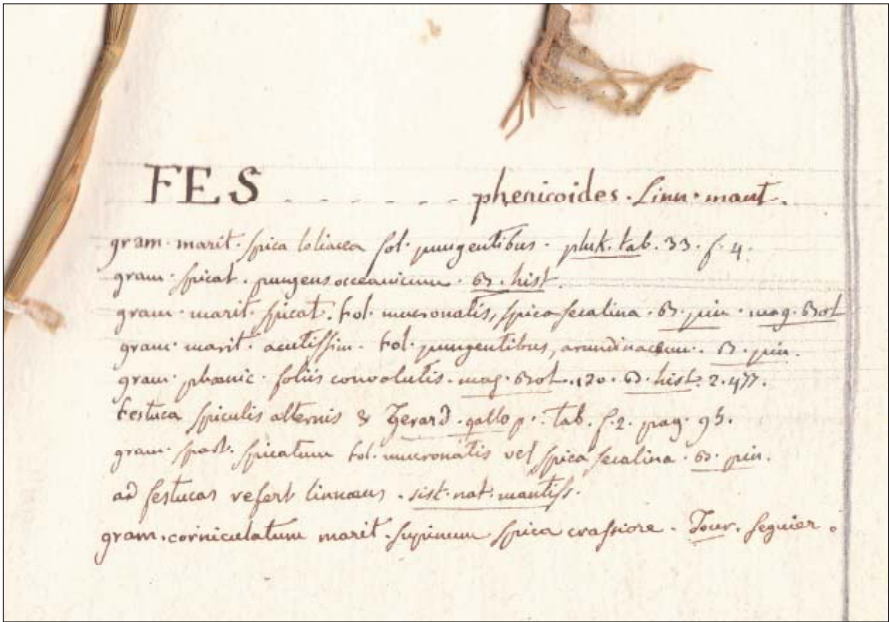 FES . . . . . . . phenicoides. Linn. mant.
gram. marit. spica loliacea fol. pungentibus. pluk. tab. 33. f. 4.
gram. spicat. pungens occeanicum. B. hist.
gram. marit. spicat. fol. mucronatis, spica secalina. B. pin. mag. Bot
gram. marit. acutissim. fol. pungentibus, arundinaceum. B. pin.
gram. phœnic. foliis convolutis. mag. Bot. 120. B. hist. 2. 477.
festuca spiculis alternis & Gerard. gallo p. tab. f. 2. pag. 95.
gram. spart. spicatum fol. mucronatis vel spica secalina. B. pin.
ad festucas refert linnæus. sist. nat. mantiss.
gram. corniculatum marit. supinum spica crassiore. Tour. seguier.